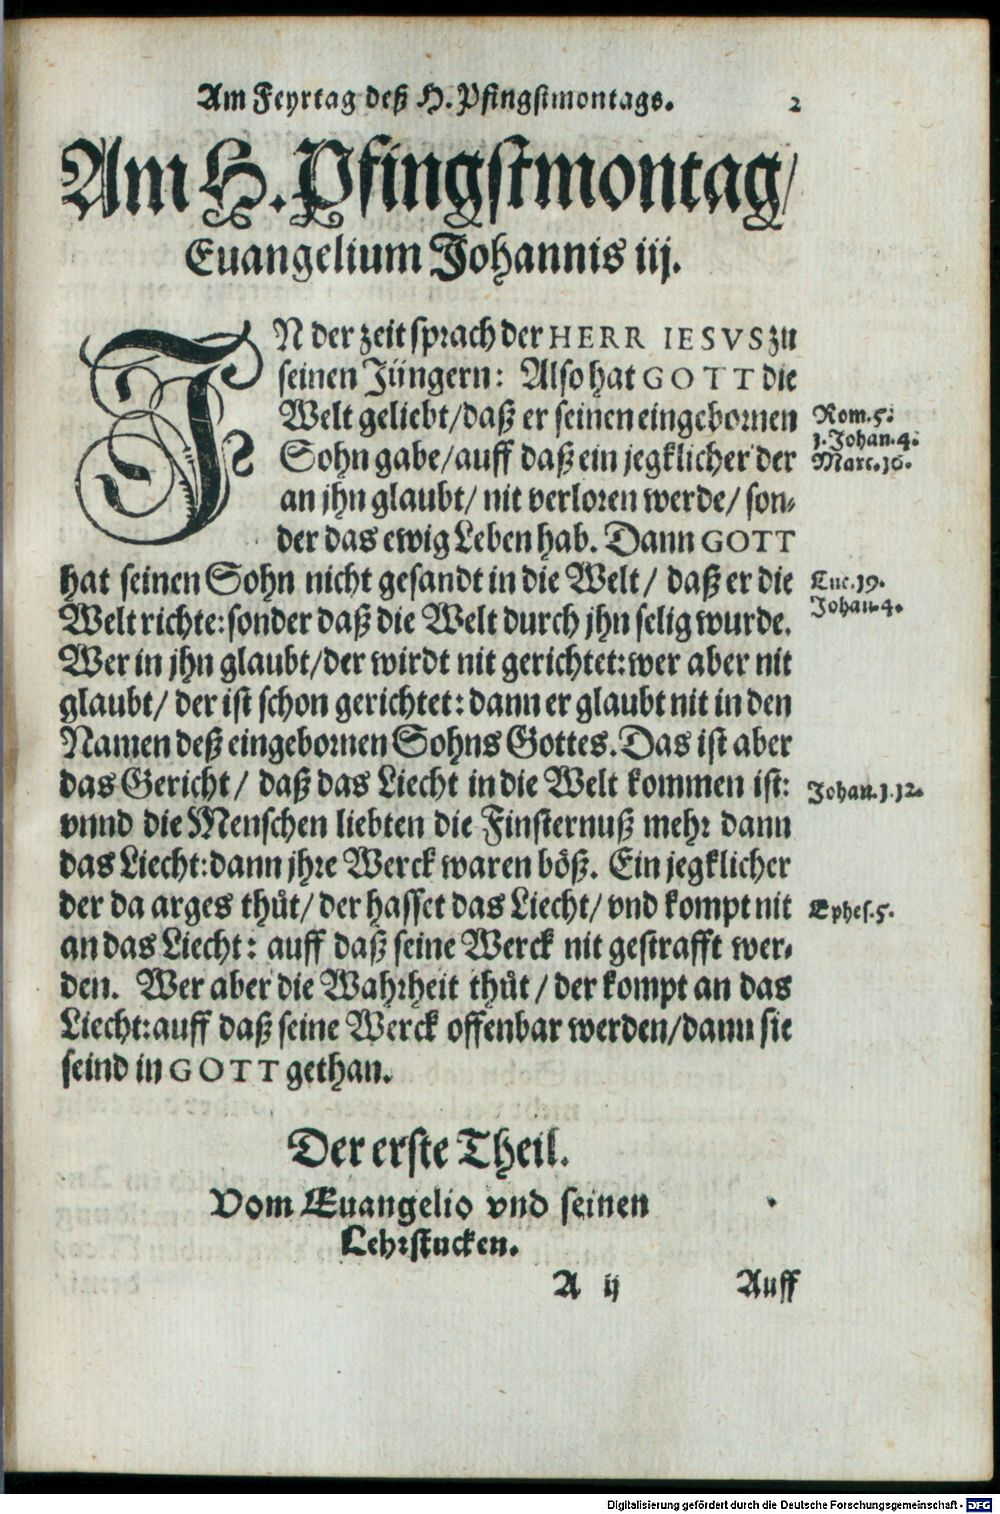 Am Feyrtag deß H. Pfingstmontags. 2
Am H. Pfingstmontag/
Euangelium Johannis iij.
IN der zeit sprach der HERR IESVS zu
seinen Jüngern: Also hat GOTT die
Welt geliebt/daß er seinen eingebornen
Rom.5.
1.Johan.4.
Sohn gabe/auff daß ein jegklicher der
Marc.16.
an jhn glaubt/ nit verloren werde/ son-
der das ewig Leben hab. Dann GOTT
hat seinen Sohn nicht gesandt in die Welt/ daß er die
Luc.19.
Johan.4.
Welt richte: sonder daß die Welt durch jhn selig wurde.
Wer in jhn glaubt/der wirdt nit gerichtet: wer aber nit
glaubt/ der ist schon gerichtet: dann er glaubt nit in den
Namen deß eingebornen Sohns Gottes. Das ist aber
das Gericht/ daß das Liecht in die Welt kommen ist:
Johan.1.12.
vnnd die Menschen liebten die Finsternuß mehr dann
das Liecht: dann jhre Werck waren böß. Ein jegklicher
der da arges thůt/ der hasset das Liecht/ vnd kompt nit
Ephes.5.
an das Liecht: auff daß seine Werck nit gestrafft wer-
den. Wer aber die Wahrheit thůt/ der kompt an das
Liecht: auff daß seine Werck offenbar werden/dann sie
seind in GOTT gethan.
Der erste Theil.
Vom Euangelio vnd seinen
Lehrstucken.
A ij Auff
Digitalisierung gefördert durch die Deutsche Forschungsgemeinschaft - DFG